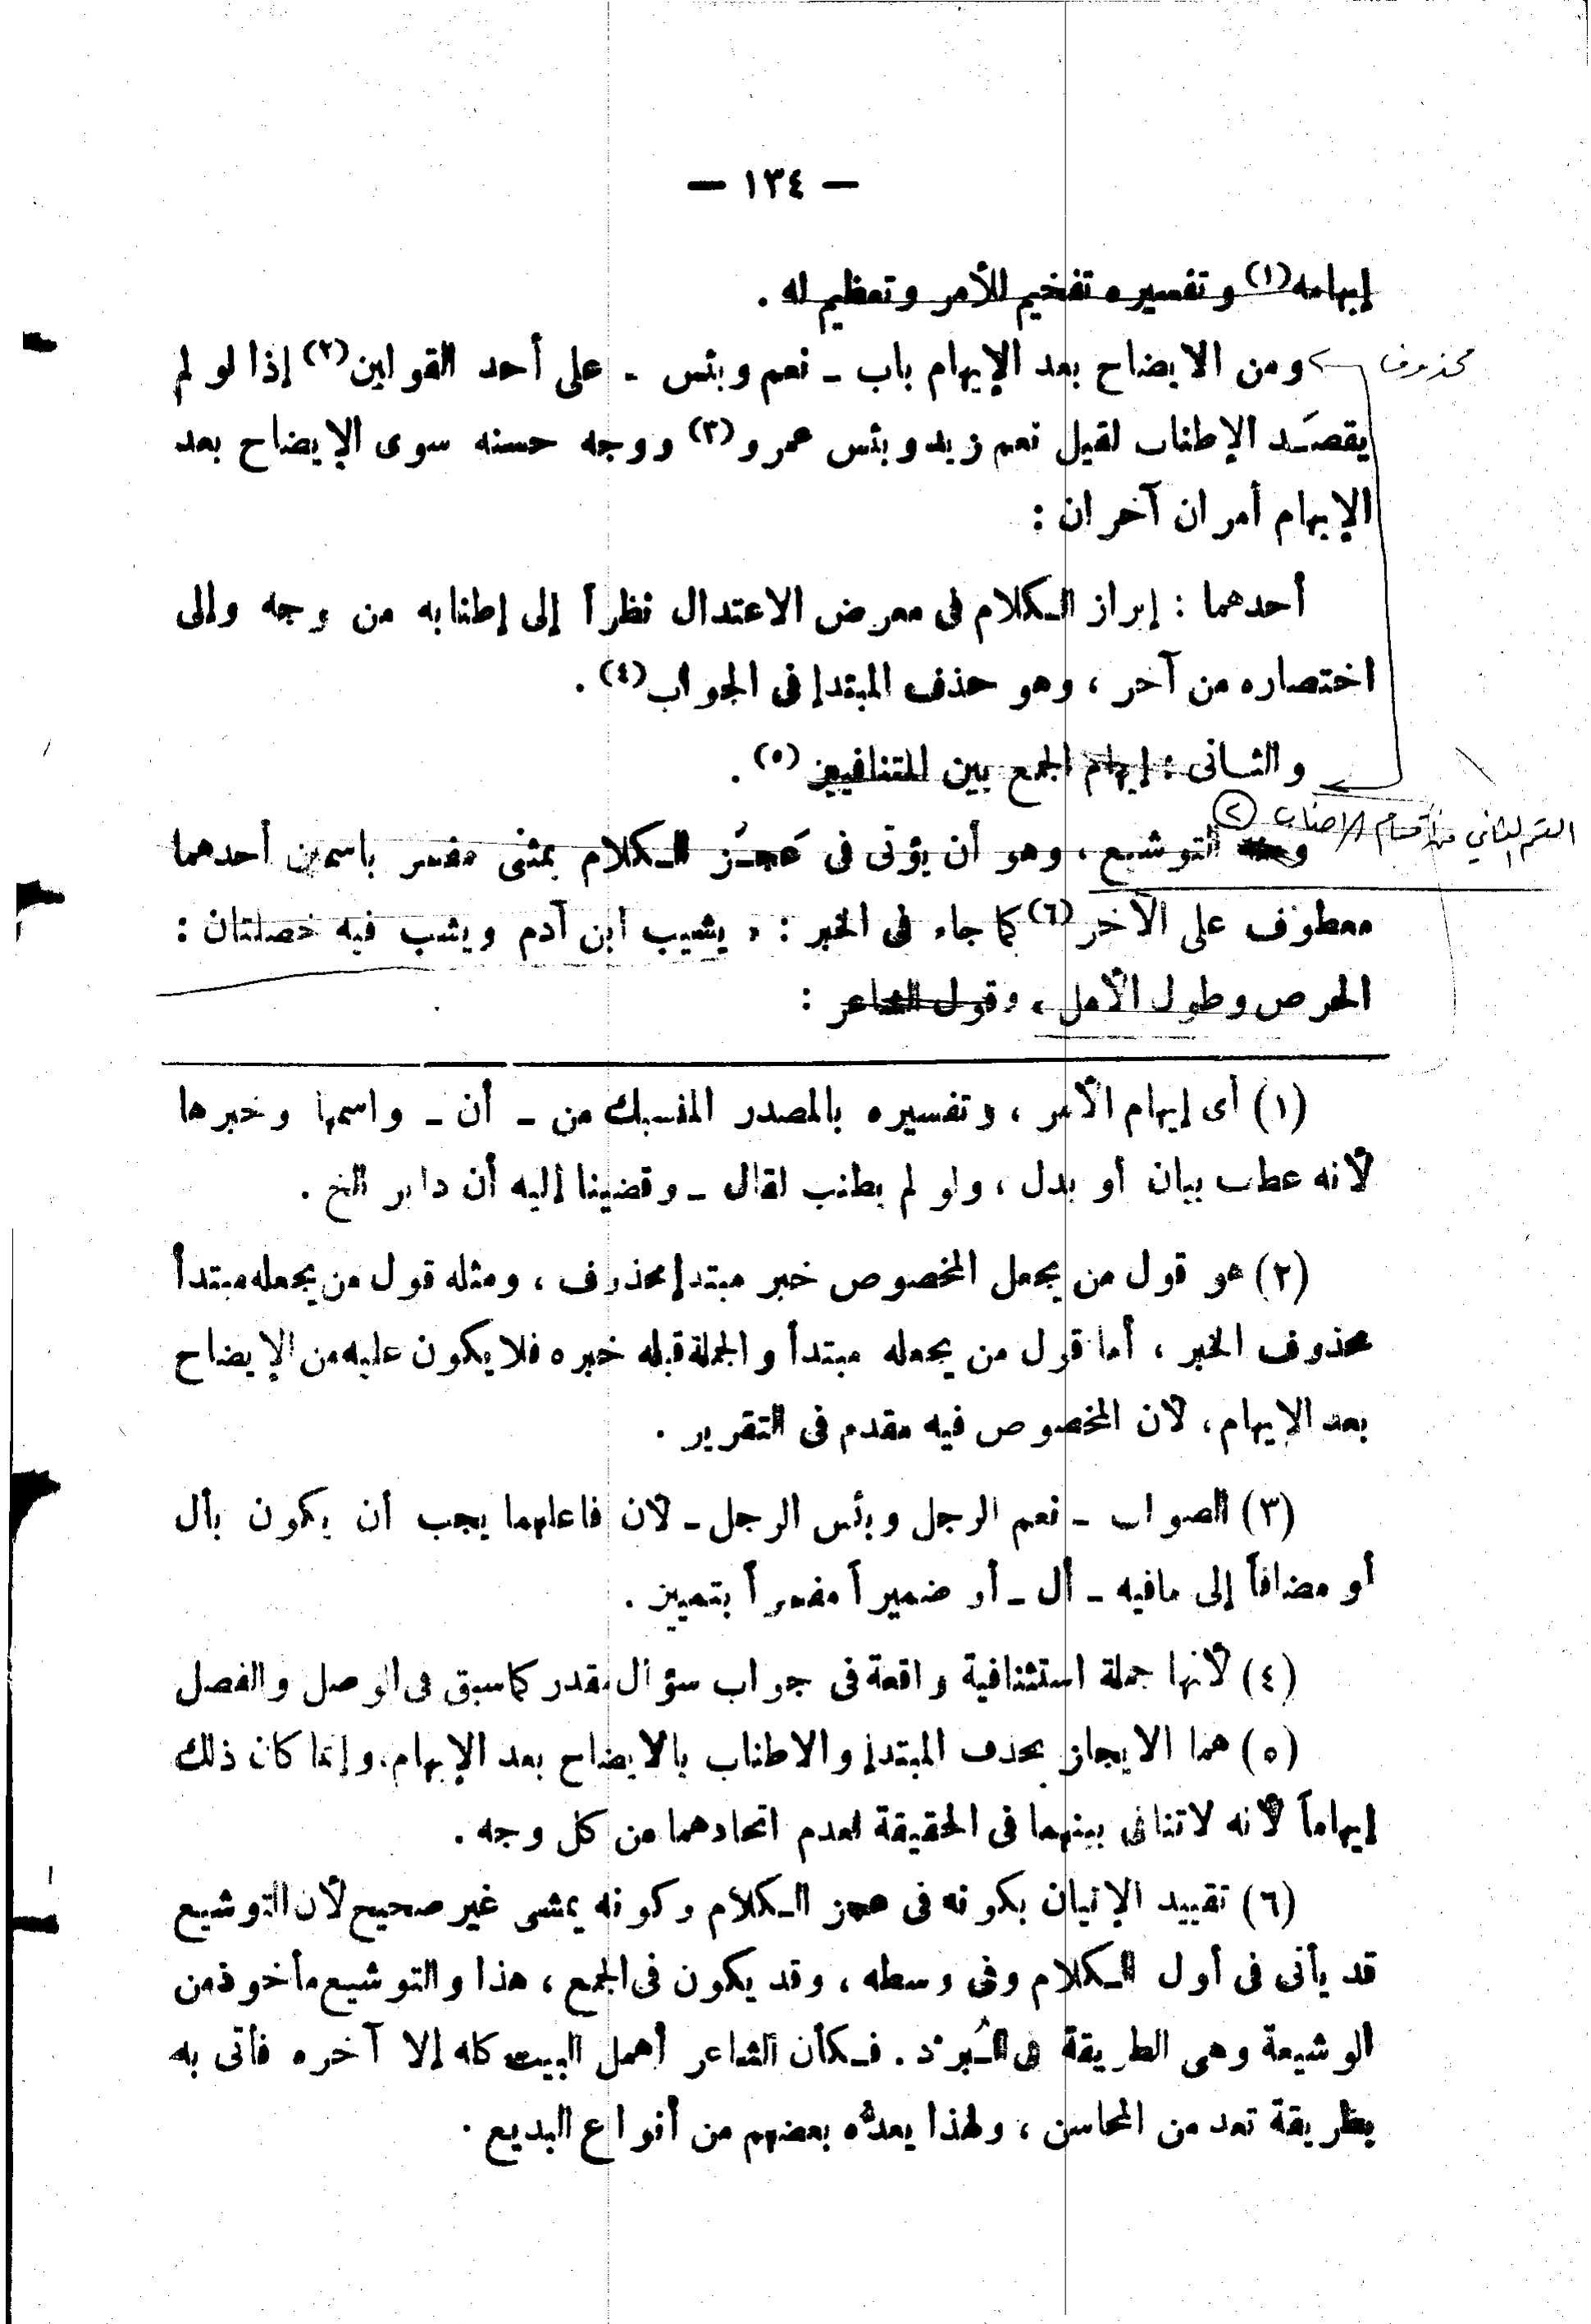 — ١٣٤ —
إبهامه(١) وتفسيره تفخيم للأمر وتعظيم له .
محذوف
ومن الايضاح بعد الإبهام باب ـ نعم وبئس ـ على أحد القولين(٢) إذا لو لم
يقصَـد الإطناب لقيل نعم زيد وبئس عمرو(٣) ووجه حسنه سوى الإيضاح بعد
الإبهام أمران آخران :
أحدهما : إبراز الـكلام فى معرض الاعتدال نظراً إلى إطنابه من وجه وإلى
اختصاره من آخر ، وهو حذف المبتدإ فى الجواب(٤) .
والثـانى : إيهام الجمع بين المتنافيين (٥) .
القسم الثاني من أقسام الاطناب ٢
ومنه التوشيع ، وهو أن يؤتى فى عَجـُز الـكلام بمثنى مفسر باسمين أحدهما
معطوف على الآخر(٦) كما جاء فى الخبر : « يشيب ابن آدم ويشب فيه خصلتان :
الحرص وطول الأمل ، وقول الشاعر :
(١) أى إبهام الأمر ، وتفسيره بالمصدر المنسبك من ـ أن ـ واسمها وخبرها
لأنه عطف بيان أو بدل ، ولو لم يطنب لقال ـ وقضينا إليه أن دابر الخ .
(٢) هو قول من يجعل المخصوص خبر مبتدإ محذوف ، ومثله قول من يجعله مبتدأ
محذوف الخبر ، أما قول من يجعله مبتدأ والجملة قبله خبره فلا يكون عليه من الإيضاح
بعد الإبهام ، لأن المخصوص فيه مقدم فى التقرير .
(٣) الصواب ـ نعم الرجل وبئس الرجل ـ لأن فاعلهما يجب أن يكون بأل
أو مضافاً إلى مافيه ـ أل ـ أو ضميراً مفسراً بتمييز .
(٤) لأنها جملة استئنافية واقعة فى جواب سؤال مقدر كما سبق فى الوصل والفصل
(٥) هما الايجاز بحذف المبتدإ والاطناب بالايضاح بعد الإبهام . وإنما كان ذلك
إيهاماً لأنه لاتنافى بينهما فى الحقيقة لعدم اتحادهما من كل وجه .
(٦) تقييد الإتيان بكونه فى عجز الـكلام وكونه بمثنى غير صحيح لأن التوشيع
قد يأتى فى أول الـكلام وفى وسطه ، وقد يكون فى الجمع ، هذا والتوشيع مأخوذ من
الوشيعة وهى الطريقة فى الـبُرْد . فـكأن الشاعر أهمل البيت كله إلا آخره فأتى به
بطريقة تعد من المحاسن ، ولهذا يعدُّه بعضهم من أنواع البديع .